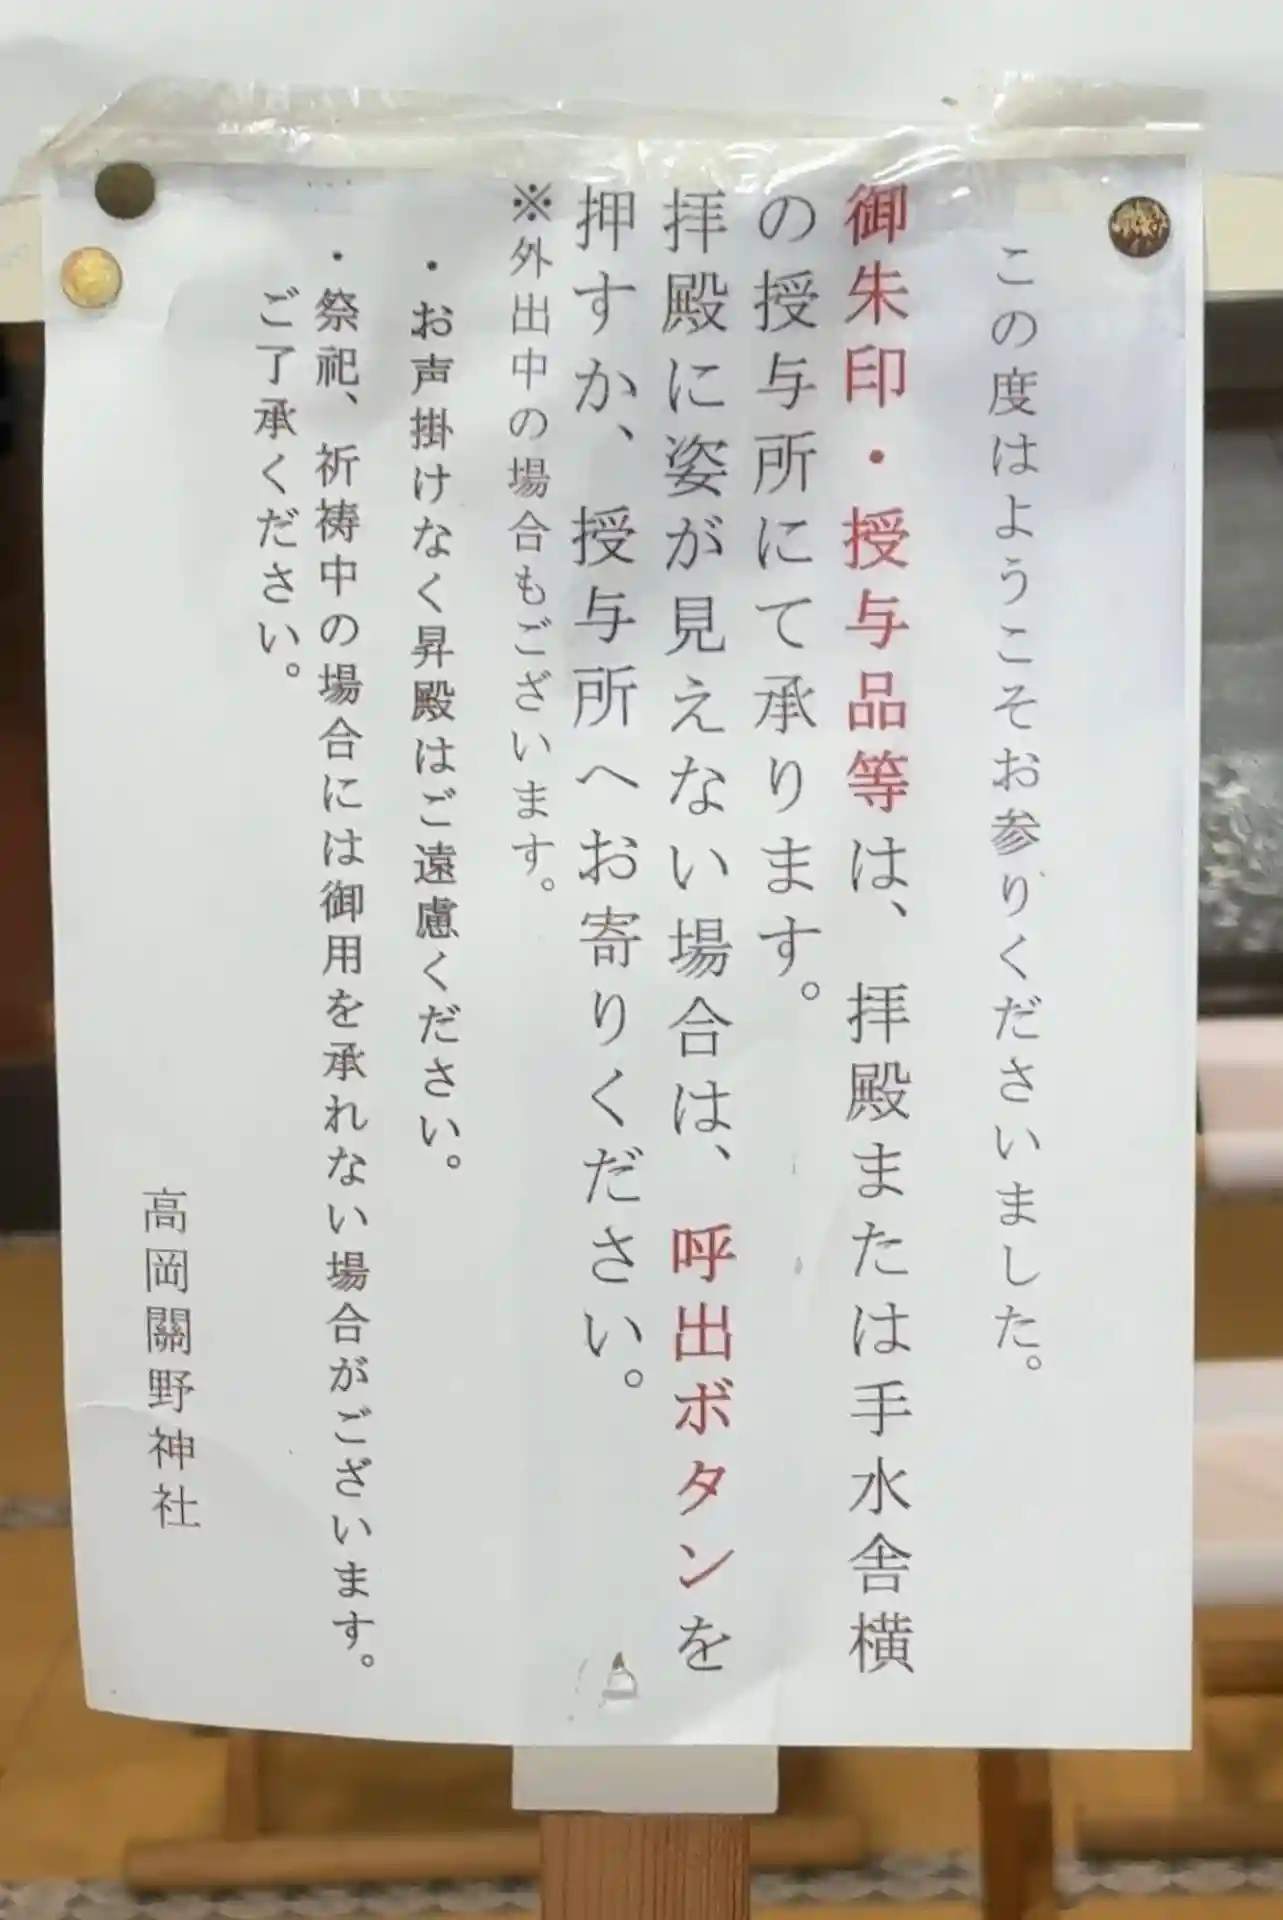 この度はようこそお参りくださいました。
御朱印・授与品等は、拝殿または手水舎横
の授与所にて承ります。
拝殿に姿が見えない場合は、呼出ボタンを
押すか、授与所へお寄りください。
※外出中の場合もございます。
・お声掛けなく昇殿はご遠慮ください。
・祭祀、祈祷中の場合には御用を承れない場合がございます。
ご了承ください。
高岡關野神社